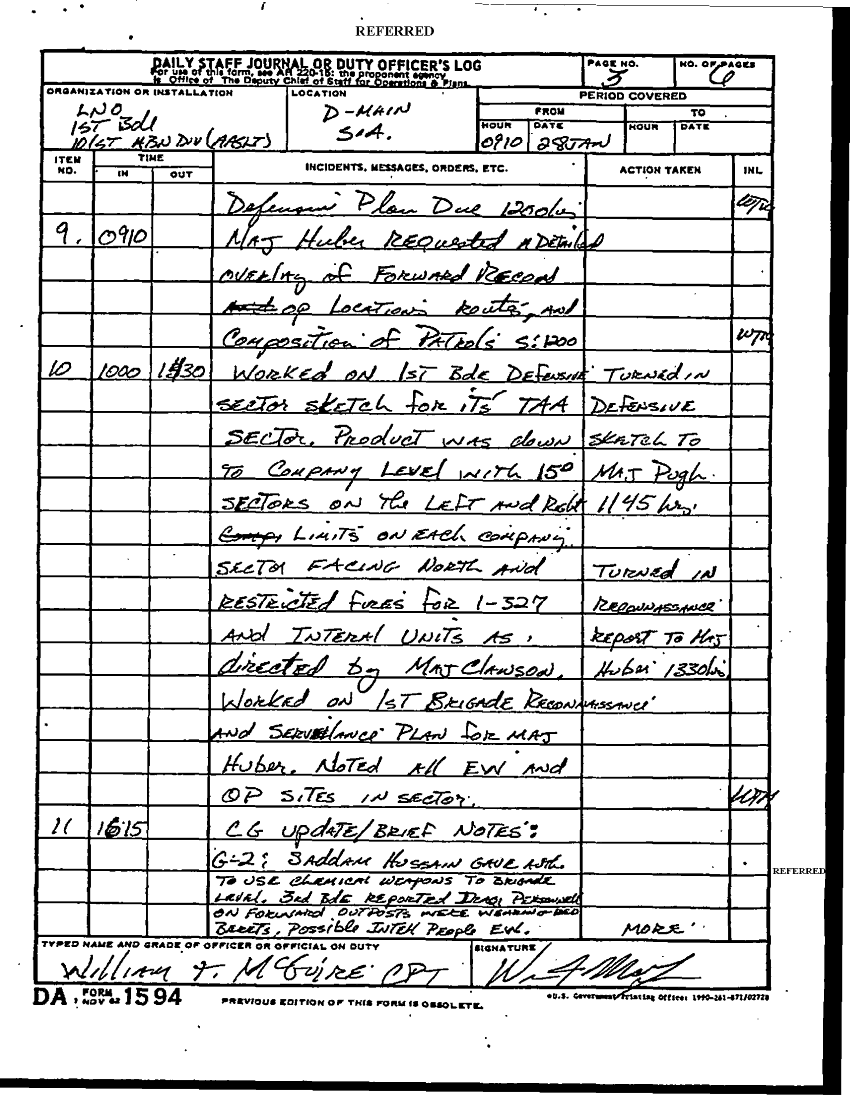 REFERRED
DAILY STAFF JOURNAL OR DUTY OFFICER'S LOG
For use of this form, see AR 220-15; the proponent agency
is Office of The Deputy Chief of Staff for Operations & Plans.
PAGE NO.
NO. OF PAGES
6
ORGANIZATION OR INSTALLATION
LNO
1ST Bde
101ST ABN DIV (AASLT)
LOCATION
D-MAIN
S.A.
PERIOD COVERED
FROM
TO
HOUR
DATE
HOUR
DATE
0910
28JAN
ITEM NO.
TIME
IN
OUT
INCIDENTS, MESSAGES, ORDERS, ETC.
ACTION TAKEN
INL
Defensive Plan Due 1200hrs
9. 0910 MAJ Huber REQUESTED A DETAILED
OVERLAY of FORWARD RECON
OP LOCATIONS ROUTES, AND
COMPOSITION of PATROLS S:1200
10 1000 1430 WORKED ON 1ST Bde DEFENSIVE TURNED IN
SECTOR SKETCH for ITS' TAA DEFENSIVE
SECTOR. PRODUCT WAS down SKETCH TO
TO COMPANY LEVEL WITH 15° MAJ Pugh.
SECTORS ON the LEFT AND Right 1145 hrs.
LIMITS ON EACH COMPANY
SECTOR FACING NORTH AND TURNED IN
RESTRICTED FIRES FOR 1-327 RECONNASSANCE
AND INTERAL UNITS AS REPORT TO MAJ
directed by MAJ CLAWSON. Huber 1330hrs
WORKED ON 1ST BRIGADE RECONNAISSANCE
AND SERVEILANCE PLAN for MAJ
Huber. NOTED All EW AND
OP SITES IN SECTOR.
11 1615 CG UPDATE/BRIEF NOTES:
G-2: SADDAM HUSSAIN GAVE Auth.
TO USE CHEMICAL WEAPONS TO BRIGADE
LEVEL. 3rd Bde REPORTED IRAQI PERSONNEL
ON FORWARD OUTPOSTS WERE WEARING RED
BERETS, POSSIBLE INTELL PEOPLE EW. MORE
REFERRED
TYPED NAME AND GRADE OF OFFICER OR OFFICIAL ON DUTY
William F. McGuire CPT
SIGNATURE
DA FORM 1 NOV 62 1594
PREVIOUS EDITION OF THIS FORM IS OBSOLETE.
U.S. Government Printing Office: 1990-261-871/02728